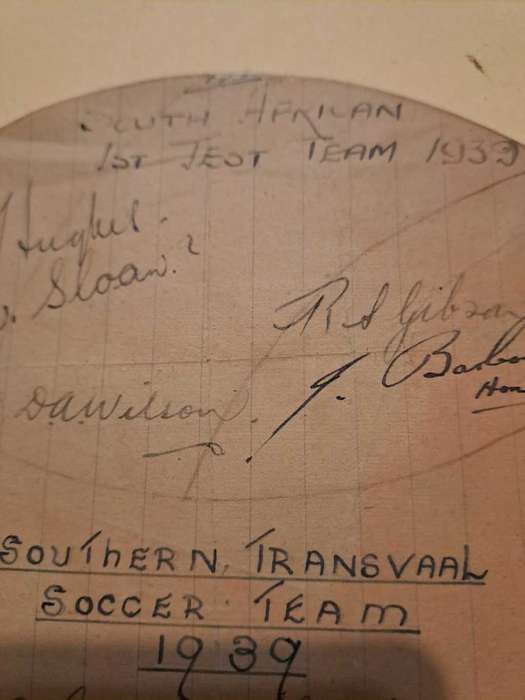 SOUTH AFRICAN
1ST TEST TEAM 1939
Hughes.
Sloan.?
R S Gibson
J. Barbo
Hon
D.A. Wilson.
SOUTHERN. TRANSVAAL
SOCCER TEAM
1939